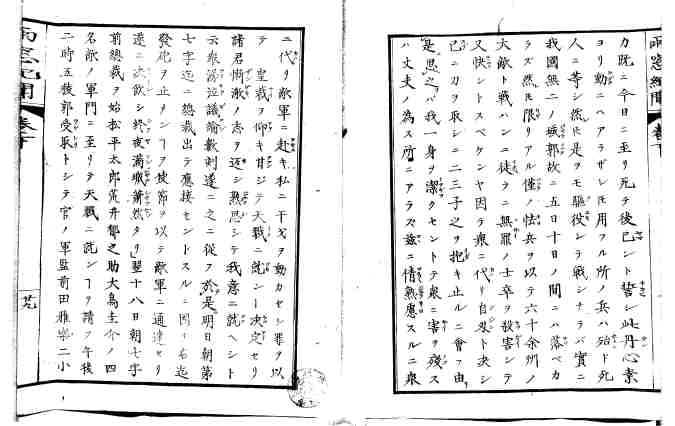 雨窓紀聞 巻下
力既ニ今日ニ至リ死テ後已ント誓シ此丹心素
ヨリ動ニハアラザレ𪜈用フル所ノ兵ハ殆ド死
人ニ等シ然𪜈是ヲモ驅役シテ戦シナラバ實ニ
我國無二ノ城郭故ニ五日十日ノ間ニハ落ベカ
ラズ然𪜈限リアル僅ノ怯兵ヲ以テ六十余州ノ
大敵ト戦ハンニ徒ラニ無罪ノ士卒ヲ殺害シテ
又快シトスベケンヤ因テ衆ニ代リ自裁ト決シ
已ニ刀ヲ取シニ二三子之ヲ抱キ止ルニ會フ由
是思之バ我一身ヲ潔クセントテ衆ニ害ヲ残ス
ハ丈夫ノ為ス所ニアラズ茲ニ情熟慮スルニ衆
ニ代リ敵軍ニ赴キ私ニ干戈ヲ動カセシ罪ヲ以
テ 皇裁ヲ仰キ甘ジテ天戮ニ就ント決定セリ
諸君慚激ノ志ヲ返シ熟思シテ我意ニ就ヘシト
云衆涕泣議論數刻遂ニ之ニ從フ於是明日朝第
七字迄ニ總裁出テ應接セントスルニ因テ右迄
發砲ヲ止ンヿヲ使節ヲ以テ敵軍ニ通達セリ
遂ニ飲シ終夜蕭然タリ翌十八日朝七字
前總裁ヲ始松平太郎荒井郁之助大鳥圭介ノ四
名敵ノ軍門ニ至リテ天戮ニ就ンヿヲ請フ午後
二時五稜郭受取トシテ官ノ軍監前田雅樂二小
雨窓紀聞 巻下
廿九